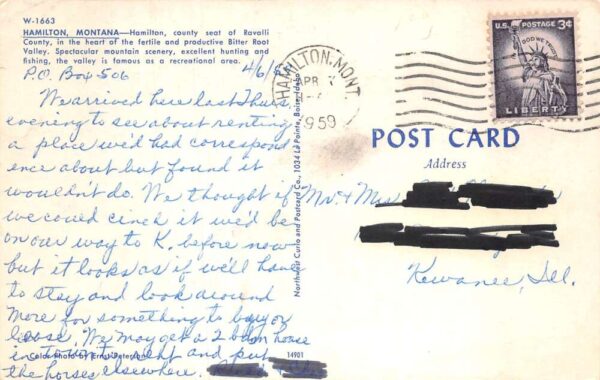 W-1663
HAMILTON, MONTANA—Hamilton, county seat of Ravalli
County, in the heart of the fertile and productive Bitter Root
Valley. Spectacular mountain scenery, excellent hunting and
fishing, the valley is famous as a recreational area.
P.O. Box 506
4/6/
We arrived here last Thurs.
evening to see about renting
a place we'd had correspond
ence about but found it
wouldn't do. We thought if
we could cinch it we'd be
on our way to K. before now
but it looks as if we'll have
to stay and look around
more for something to buy or
lease. We may get a 2 bdrm house
in town to rent and put
the horses elsewhere.
Color Photo by Ernst Peterson
14901
Northwest Curio and Postcard Co., 1034 La Pointe, Boise, Idaho
HAMILTON, MONT.
APR 7
1959
U.S. POSTAGE 3¢
IN GOD WE TRUST
LIBERTY
POST CARD
Address
Mr. & Mrs.
Kewanee, Ill.